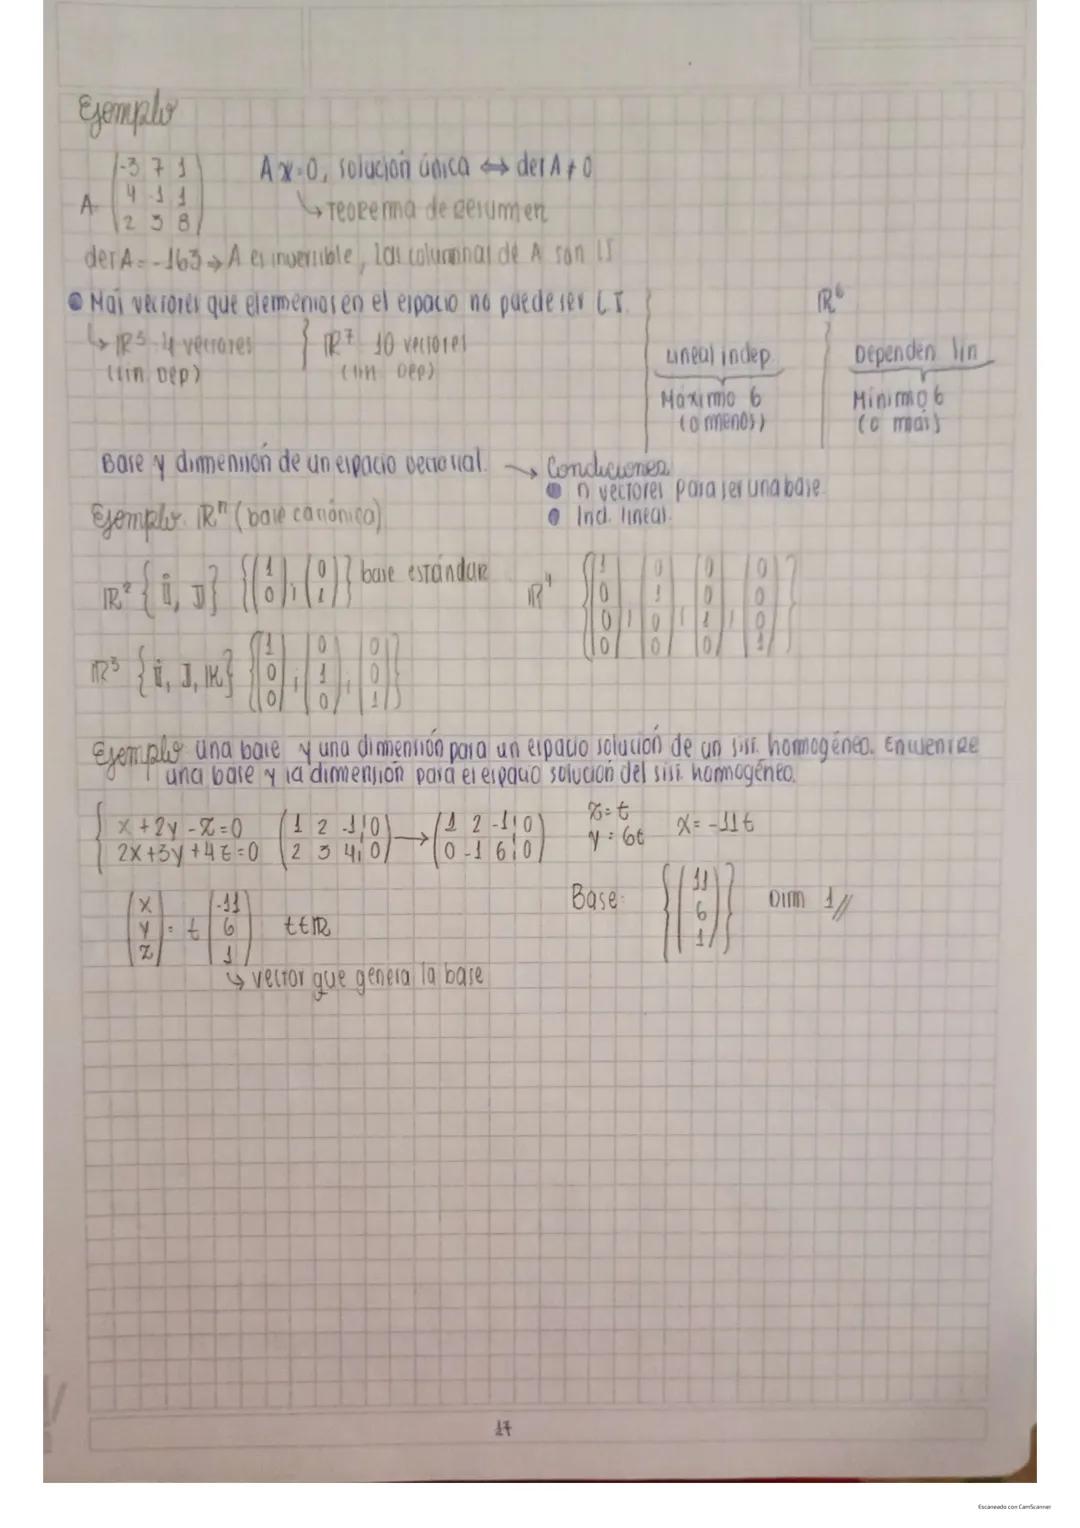 Ejemplo
A= (-3 7 1
4 -1 1
2 3 8)
Ax=0, solución única ⟺ det A ≠ 0
↳ Teorema de resumen
det A = -163 → A es invertible, las columnas de A son LI
● Mas vectores que elementos en el espacio no puede ser L.I.
↳ IR³ 4 vectores } IR⁷ 10 vectores
(lin. Dep) (lin Dep)
Lineal indep.
Máximo 6
(o menos)
IR⁶
Dependen lin
Minimo 6
(o más)
Base y dimensión de un espacio vectorial. → Condiciones
● n vectores para ser una base.
● Ind. lineal.
Ejemplo IRⁿ (base canónica)
IR² {i, J} {(1 0), (0 1)} base estándar
IR⁴ {(1 0 0 0), (0 1 0 0), (0 0 1 0), (0 0 0 1)}
IR³ {i, J, IK} {(1 0 0), (0 1 0), (0 0 1)}
Ejemplo una base y una dimensión para un espacio solución de un sist. homogéneo. Encuentre
una base y la dimensión para el espacio solución del sist. homogéneo.
{ x+2y-z=0
2x+3y+4z=0
(1 2 -1 | 0
2 3 4 | 0)
→ (1 2 -1 | 0
0 -1 6 | 0)
z=t
y=6t
x=-11t
(x y z) = t (-11 6 1) t∈IR
↳ vector que genera la base
Base: {(11 6 1)} Dim 1//
17
Escaneado con CamScanner